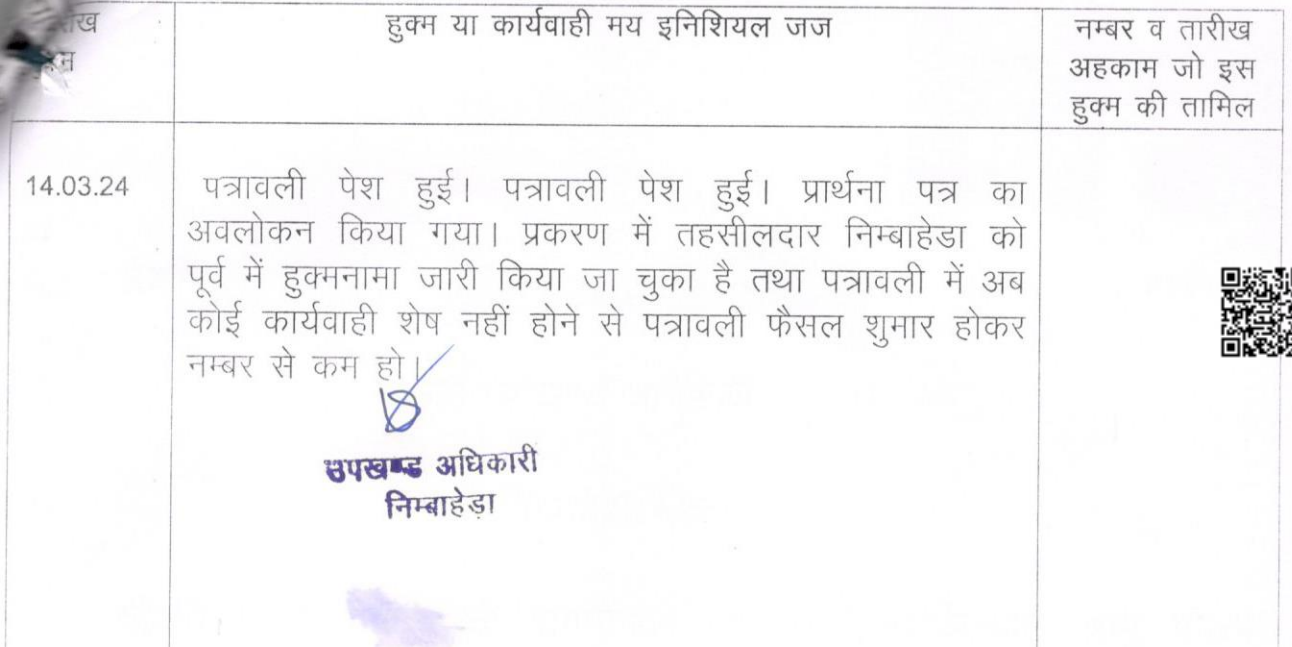 हुक्म या कार्यवाही मय इनिशियल जज
नम्बर व तारीख
अहकाम जो इस
हुक्म की तामिल
14.03.24
पत्रावली पेश हुई। पत्रावली पेश हुई। प्रार्थना पत्र का
अवलोकन किया गया। प्रकरण में तहसीलदार निम्बाहेडा को
पूर्व में हुक्मनामा जारी किया जा चुका है तथा पत्रावली में अब
कोई कार्यवाही शेष नहीं होने से पत्रावली फैसल शुमार होकर
नम्बर से कम हो।
उपखण्ड अधिकारी
निम्बाहेड़ा